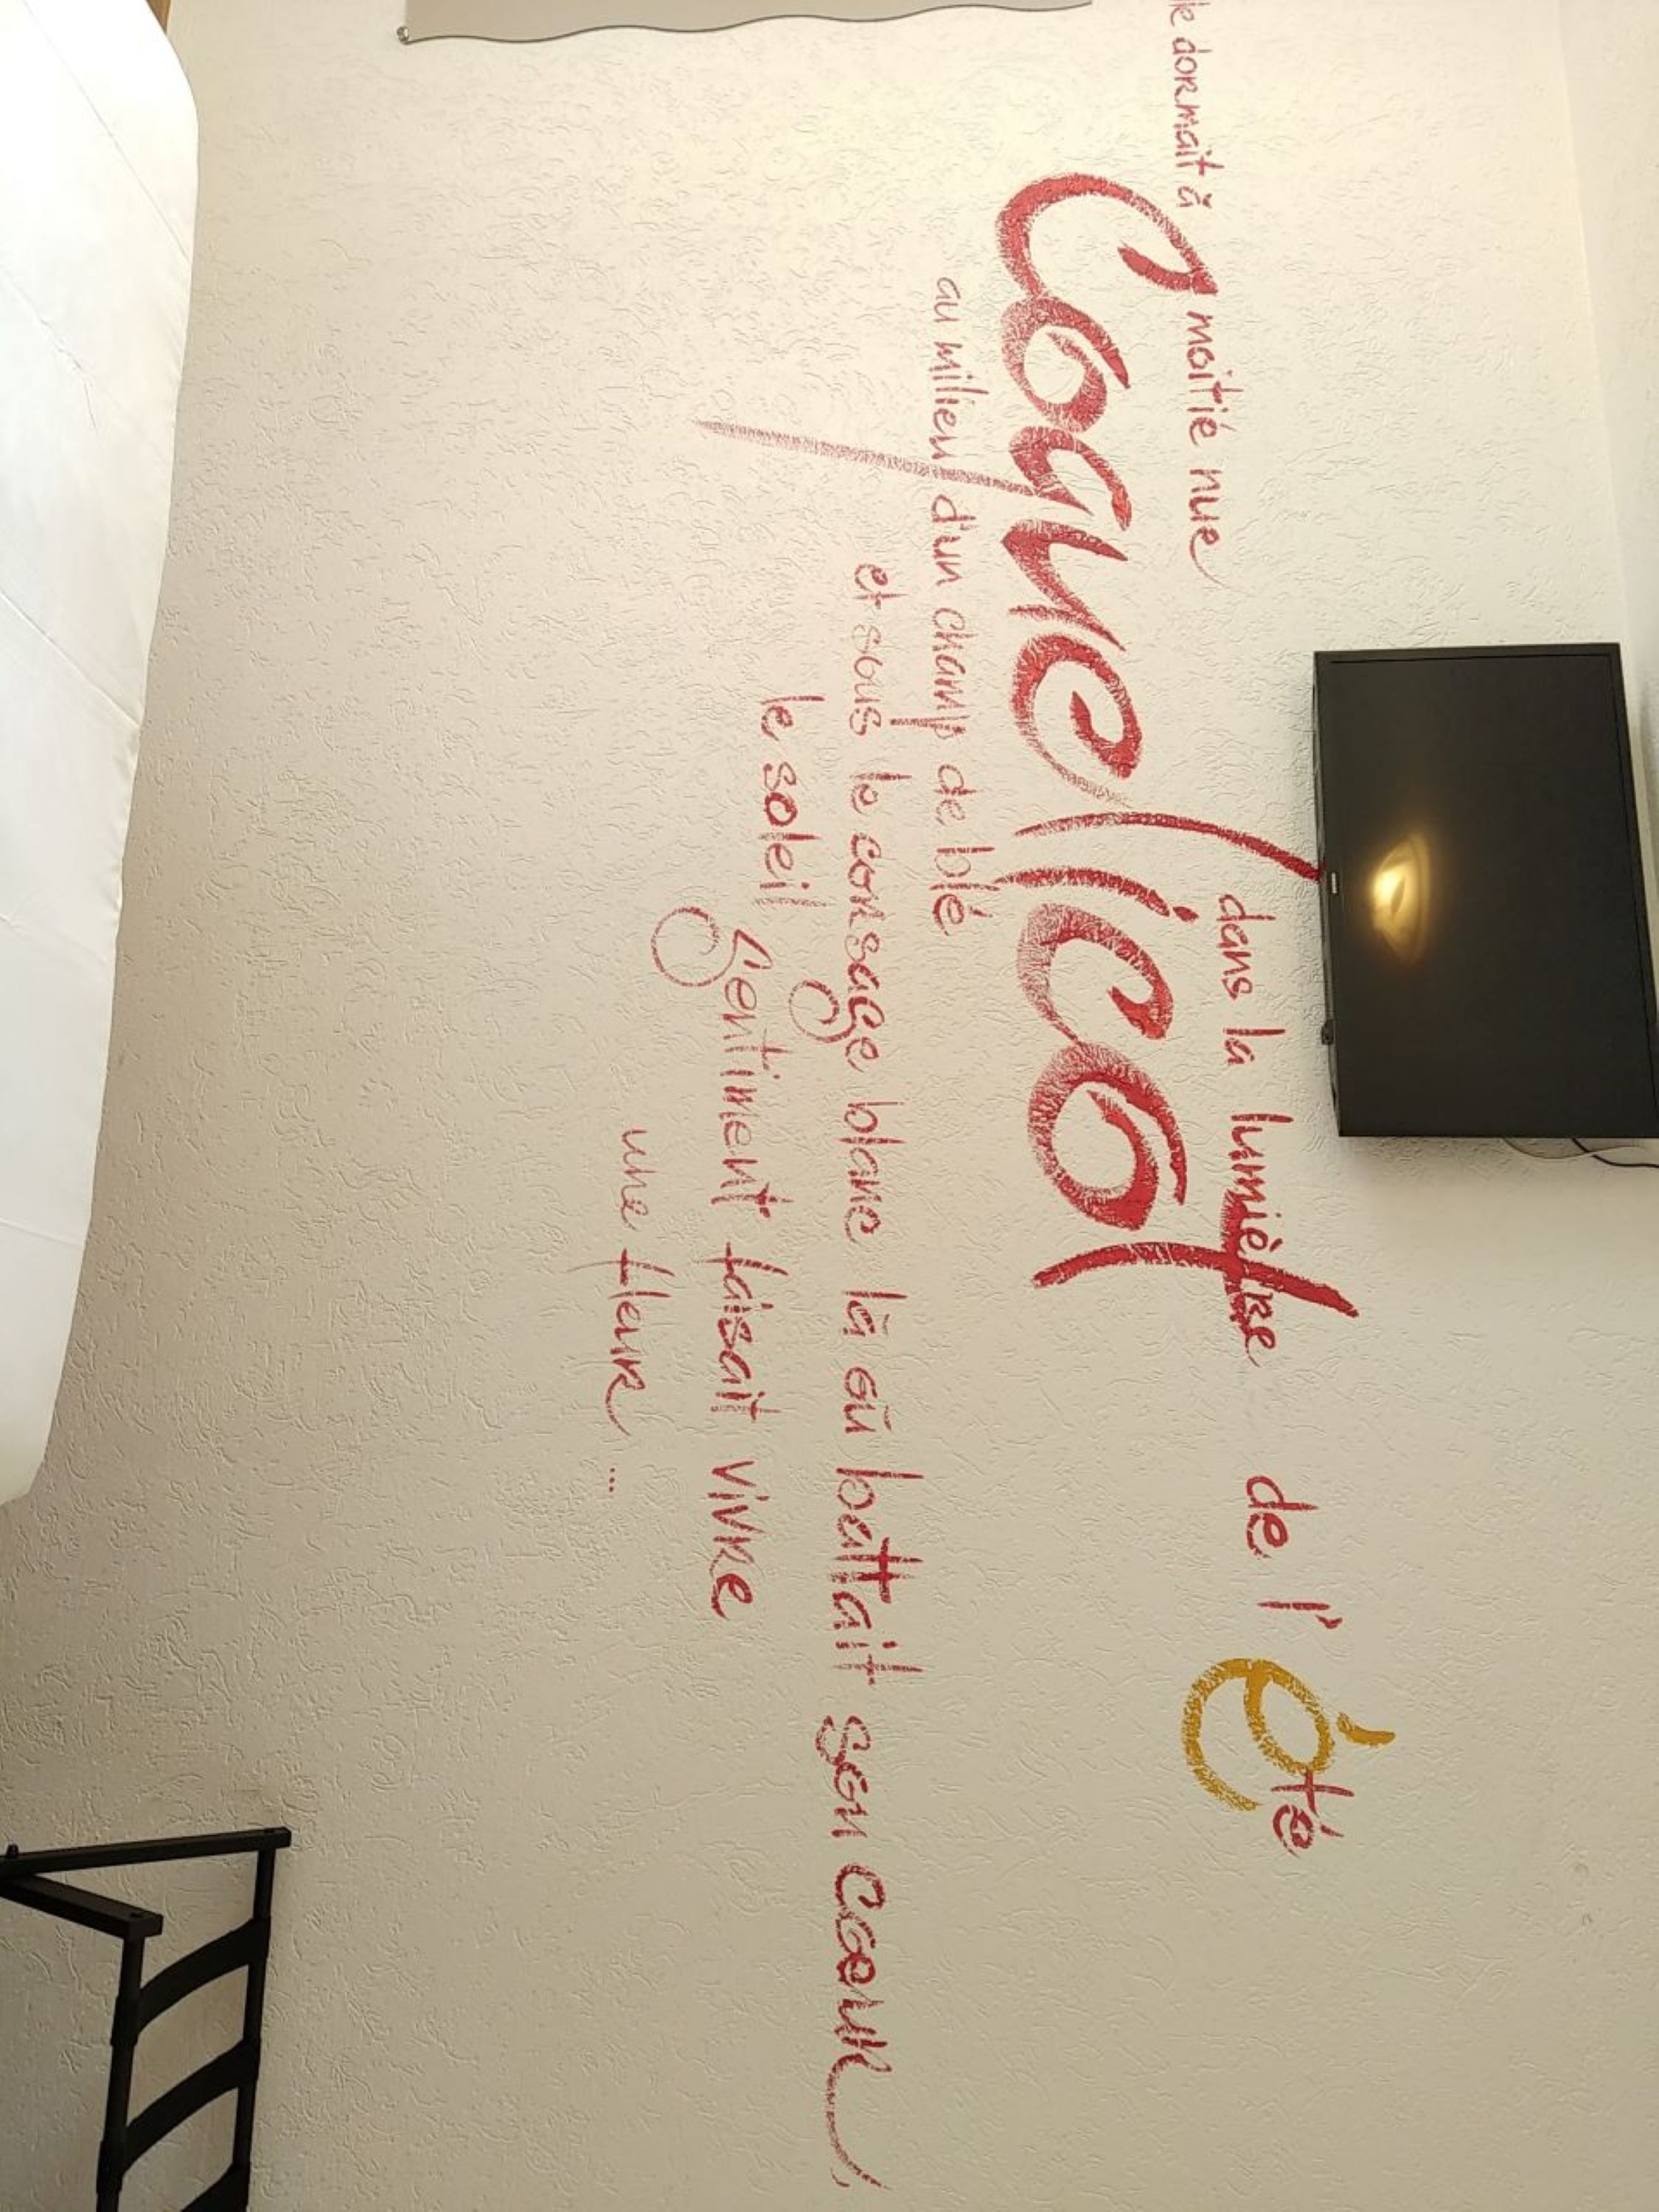 le dormait à moitié nue dans la lumière de l'été
Coquelicot
au milieu d'un champ de blé
et sous le corsage blanc là où battait son coeur,
le soleil Gentiment faisait vivre
une fleur...